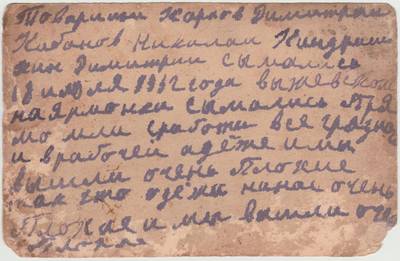 Товарищи Жарков Димитрии
Кабанов Николаи Киндраш
кин Димитрии сымались
18 июля 1912 года выжевском
на ярмонки сымались Пря
мо мли сработы все грязно
и врабочей адеже и мы
вышли очень Плохие
как что одежи на нас очень
Плохие и мы вышли очен
Плохие